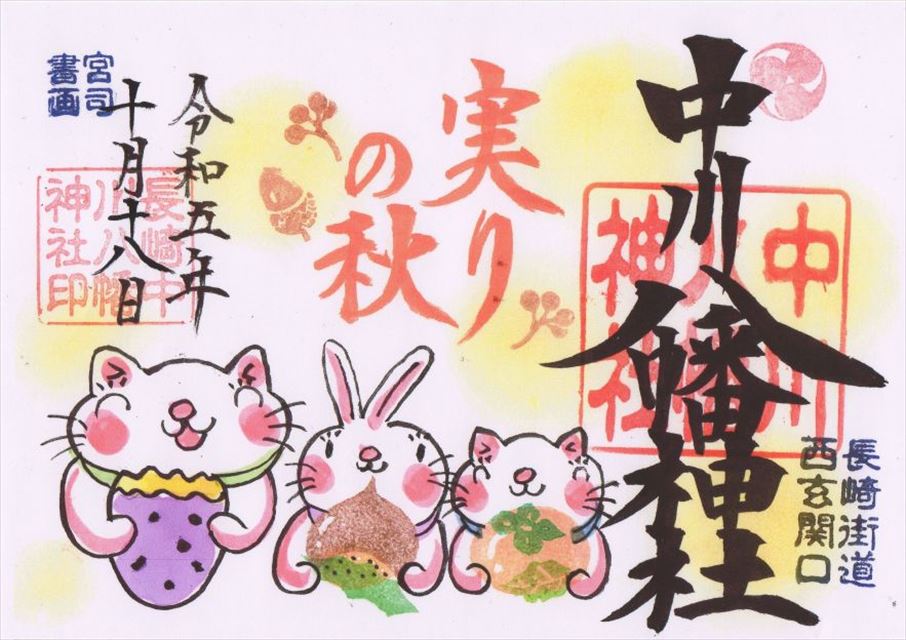 中川八幡神社
長崎街道
西玄関口
中川八幡神社
実り
の秋
令和五年
十月十八日
宮司
書画
長崎中
川八幡
神社印